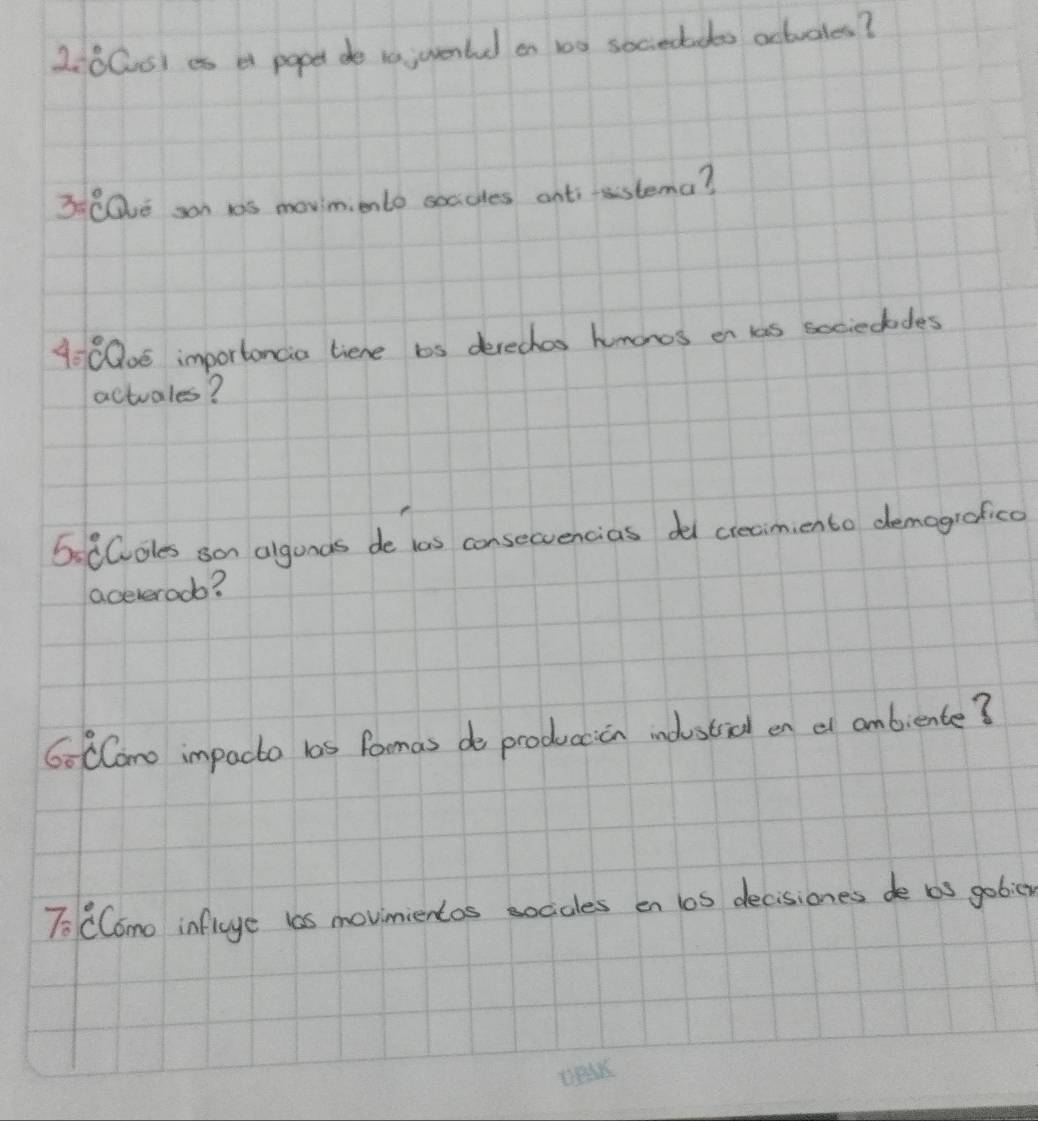 2.- ¿Cuál es el papel de la juventud en las sociedades actuales?
3.- ¿Qué son los movimiento sociales anti-sistema?
4.- ¿Qué importancia tiene los derechos humanos en las sociedades
actuales?
5.- ¿Cuáles son algunas de las consecuencias del crecimiento demográfico
acelerado?
6.- ¿Cómo impacta las formas de producción industrial en el ambiente?
7.- ¿Cómo influye los movimientos sociales en las decisiones de los gobier
OPAK